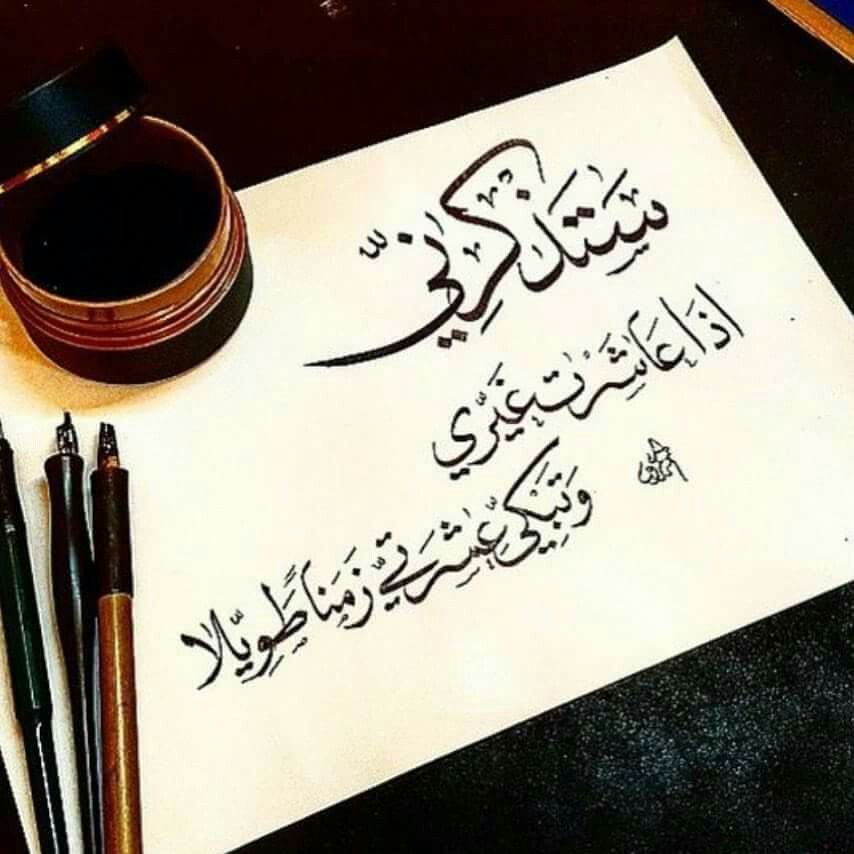 ستذكرني
اذا عاشرت غيري
وتبكي عشرتي زمناً طويلا